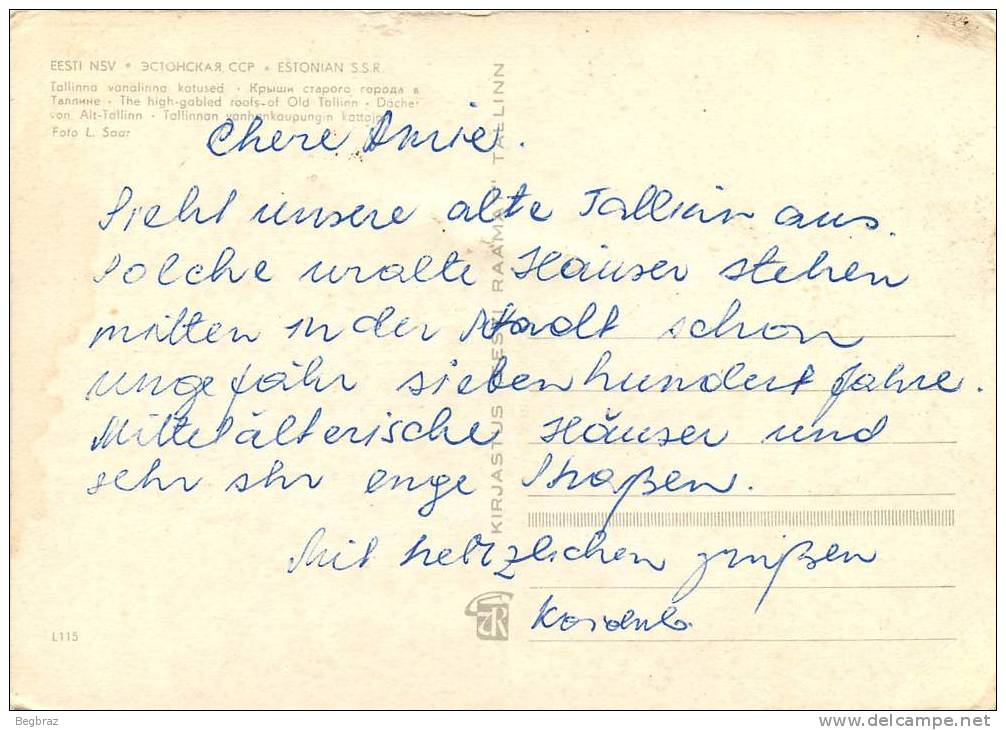 EESTI NSV • ЭСТОНСКАЯ ССР • ESTONIAN S.S.R.
Tallinna vanalinna katused • Крыши старого города в
Таллине • The high-gabled roofs of Old Tallinn • Dächer
von Alt-Tallinn • Tallinnan vanhankaupungin kattoja
Foto L. Saar
Chere Amie.
Sieht unsere alte Tallinn aus.
Solche uralte Häuser stehen
mitten in der Stadt schon
ungefähr siebenhundert Jahre.
Mittelälterische Häuser und
sehr shr enge Straßen.
Mit herzlichen grüßen
KIRJASTUS "EESTI RAAMAT" TALLINN
L115
Begbraz
www.delcampe.net